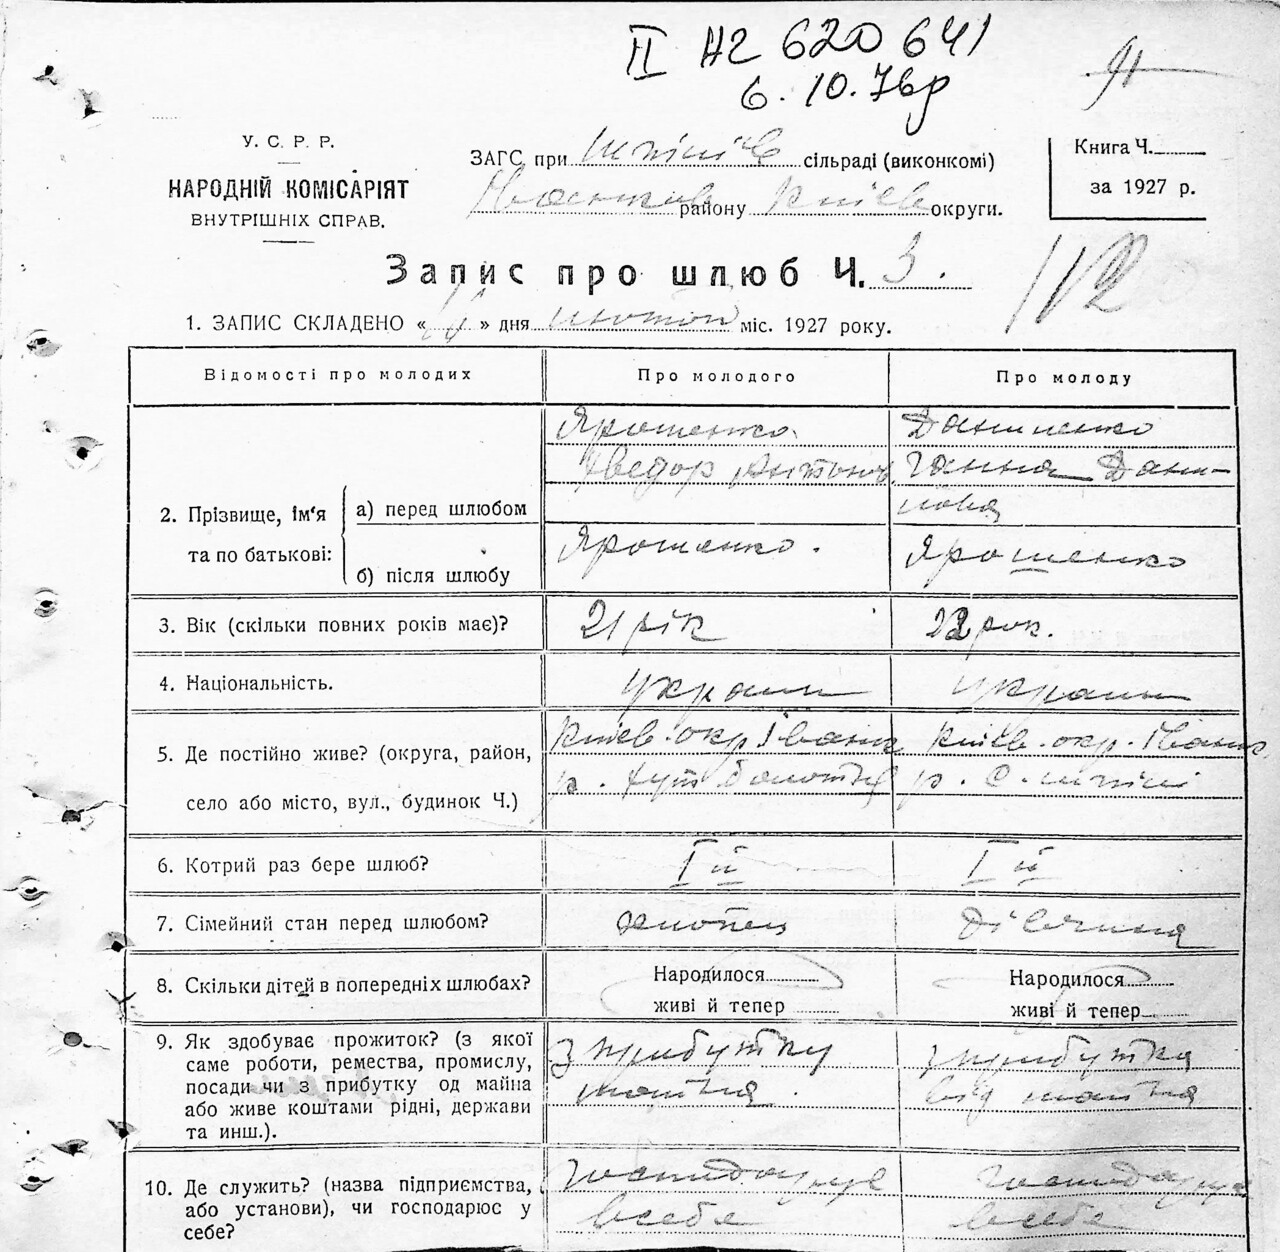 II НГ 620641
6.10.76р
91
У. С. Р. Р.
НАРОДНІЙ КОМІСАРІЯТ
ВНУТРІШНІХ СПРАВ.
ЗАГС при Шпилів сільраді (виконкомі)
Іванків району Київ округи.
Книга Ч.
за 1927 р.
Запис про шлюб Ч. 3.
112
1. ЗАПИС СКЛАДЕНО « » дня лютого міс. 1927 року.
Відомості про молодих Про молодого Про молоду
2. Прізвище, ім'я та по батькові:
а) перед шлюбом
Ярошенко
Хведор Антонов
Даниленко
Ганна Дани-
лова
б) після шлюбу
Ярошенко.
Ярошенко
3. Вік (скільки повних років має)? 21 рік 22 рок.
4. Національність. украин украин
5. Де постійно живе? (округа, район,
село або місто, вул., будинок Ч.)
Київ. окр Іванк
р. Хут
Київ. окр. Іванк
р. с.
6. Котрий раз бере шлюб? I й I й
7. Сімейний стан перед шлюбом? хлопец дівчина
8. Скільки дітей в попередніх шлюбах?
Народилося
живі й тепер
Народилося
живі й тепер
9. Як здобуває прожиток? (з якої
саме роботи, ремества, промислу,
посади чи з прибутку од майна
або живе коштами рідні, держави
та инш.).
з прибутку
майна
з прибутка
від майна
10. Де служить? (назва підприємства,
або установи), чи господарює у
себе?
господарує
в себе
господарує
в себе